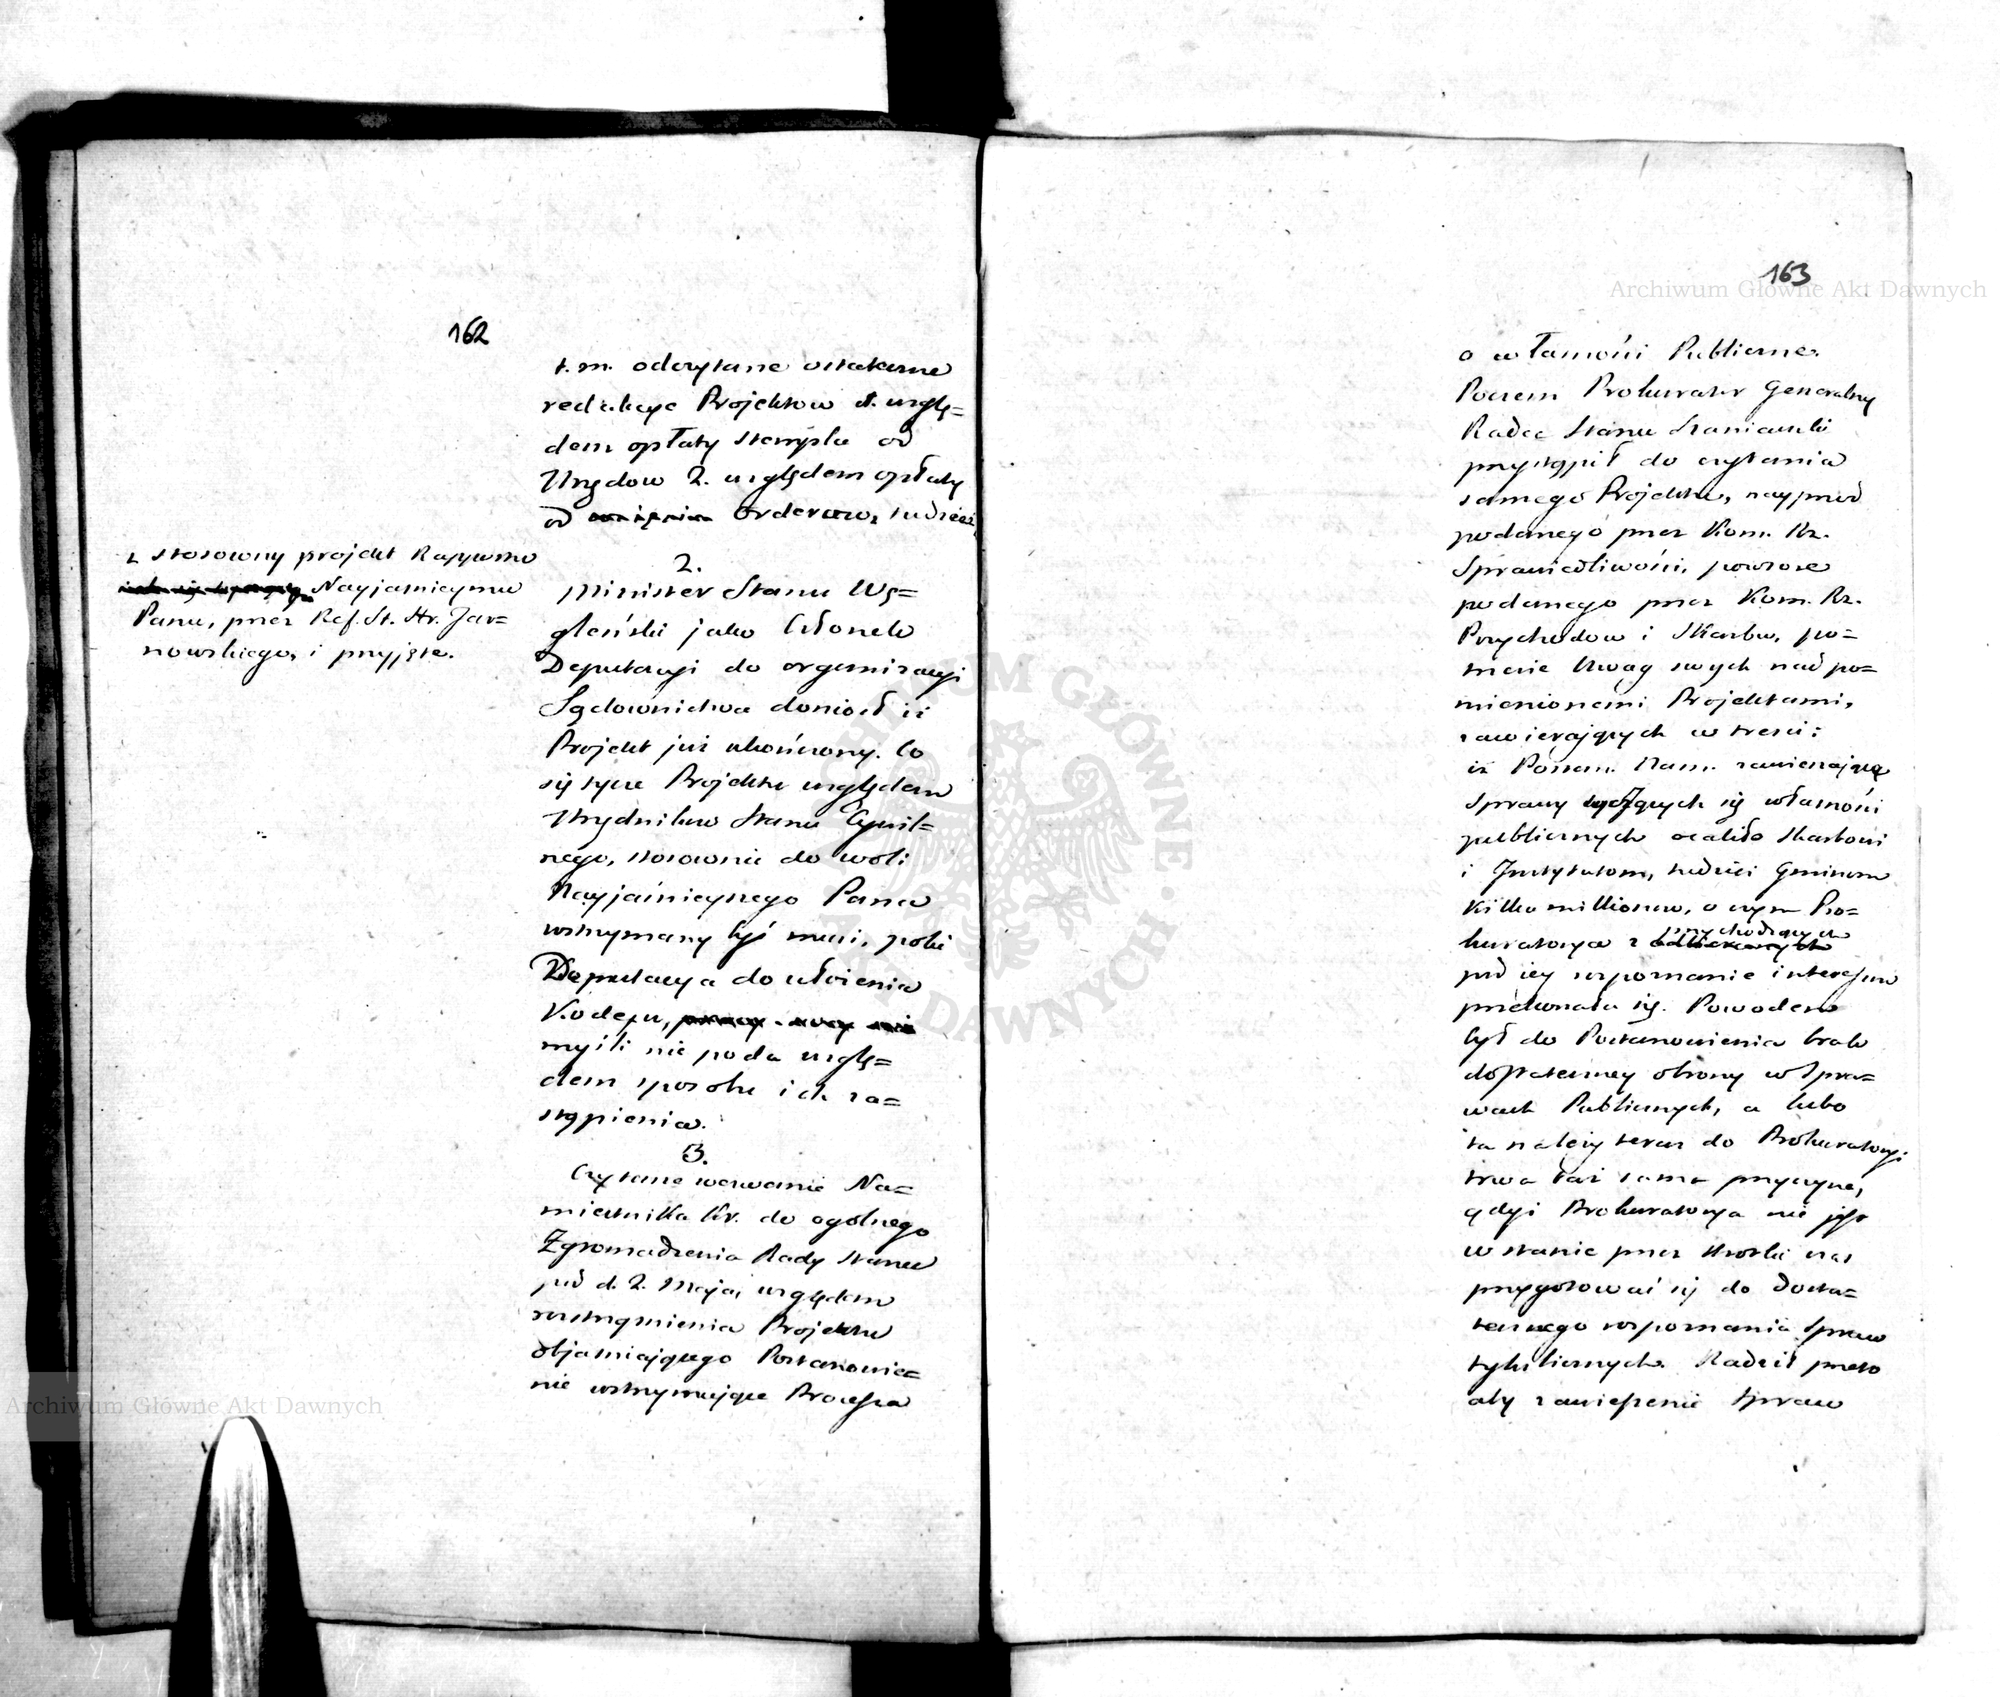 162
t. m. odczytane ostateczne
redakcye Projektow 1. wzglę=
dem opłaty stempla od
Urzędow 2. względem opłaty
od Orderow, tudzież
z stosowny projekt Rapportu
Nayjaśnieyszemu
Panu, przez Ref. St. Hr. Jar=
nowskiego, i przyjęte.
2.
Minister Stanu Wę=
gleński jako Członek
Deputacyi do organizacyi
Sądownictwa doniosł iż
Projekt już ukończony. Co
się tycze Projektu względem
Urzędnikow Stanu Cywil=
nego, stosownie do woli
Nayjaśnieyszego Pana
wstrzymany być musi, poki
Deputacya do ułożenia
Kodexu,
myśli nie poda wzglę=
dem sposobu ich za=
stąpienia.
3.
Czytane wezwanie Na=
miestnika Kr. do ogolnego
Zgromadzenia Rady Stanu
pod d. 2. Maja, względem
rozstrzygnienia Projektu
objaśniającego Postanowie=
nie wstrzymujące Processa
163
o własności Publiczne.
Poczem Prokurator Generalny
Radca Stanu Szaniawski
przystąpił do czytania
samego Projektu, nayprzod
podanego przez Kom. Rz.
Sprawiedliwości, powtore
podanego przez Kom. Rz.
Przychodow i Skarbu, po=
trzecie Uwag swych nad po=
mienionemi Projektami,
zawierających w treści:
iż Postan. Nam. zawieszające
sprawy tyczących się własności
publicznych ocaliło Skarbowi
i Instytutom, tudzież Gminom
kilka millionow, o czym Pro=
kuratorya z przychodzących
pod iey rozpoznanie interesow
przekonała się. Powodem
był do Postanowienia brak
dostateczney obrony w Spra=
wach Publicznych, a lubo
ta należy teraz do Prokuratoryi
trwa taż sama przyczyna,
gdyż Prokuratorya nie jest
w stanie przez krotki czas
przygotować się do dosta=
tecznego rozpoznania Spraw
tylu licznych. Radził przeto
aby zawieszenie Spraw
Archiwum Główne Akt Dawnych
Archiwum Główne Akt Dawnych
ARCHIWUM GŁÓWNE AKT DAWNYCH